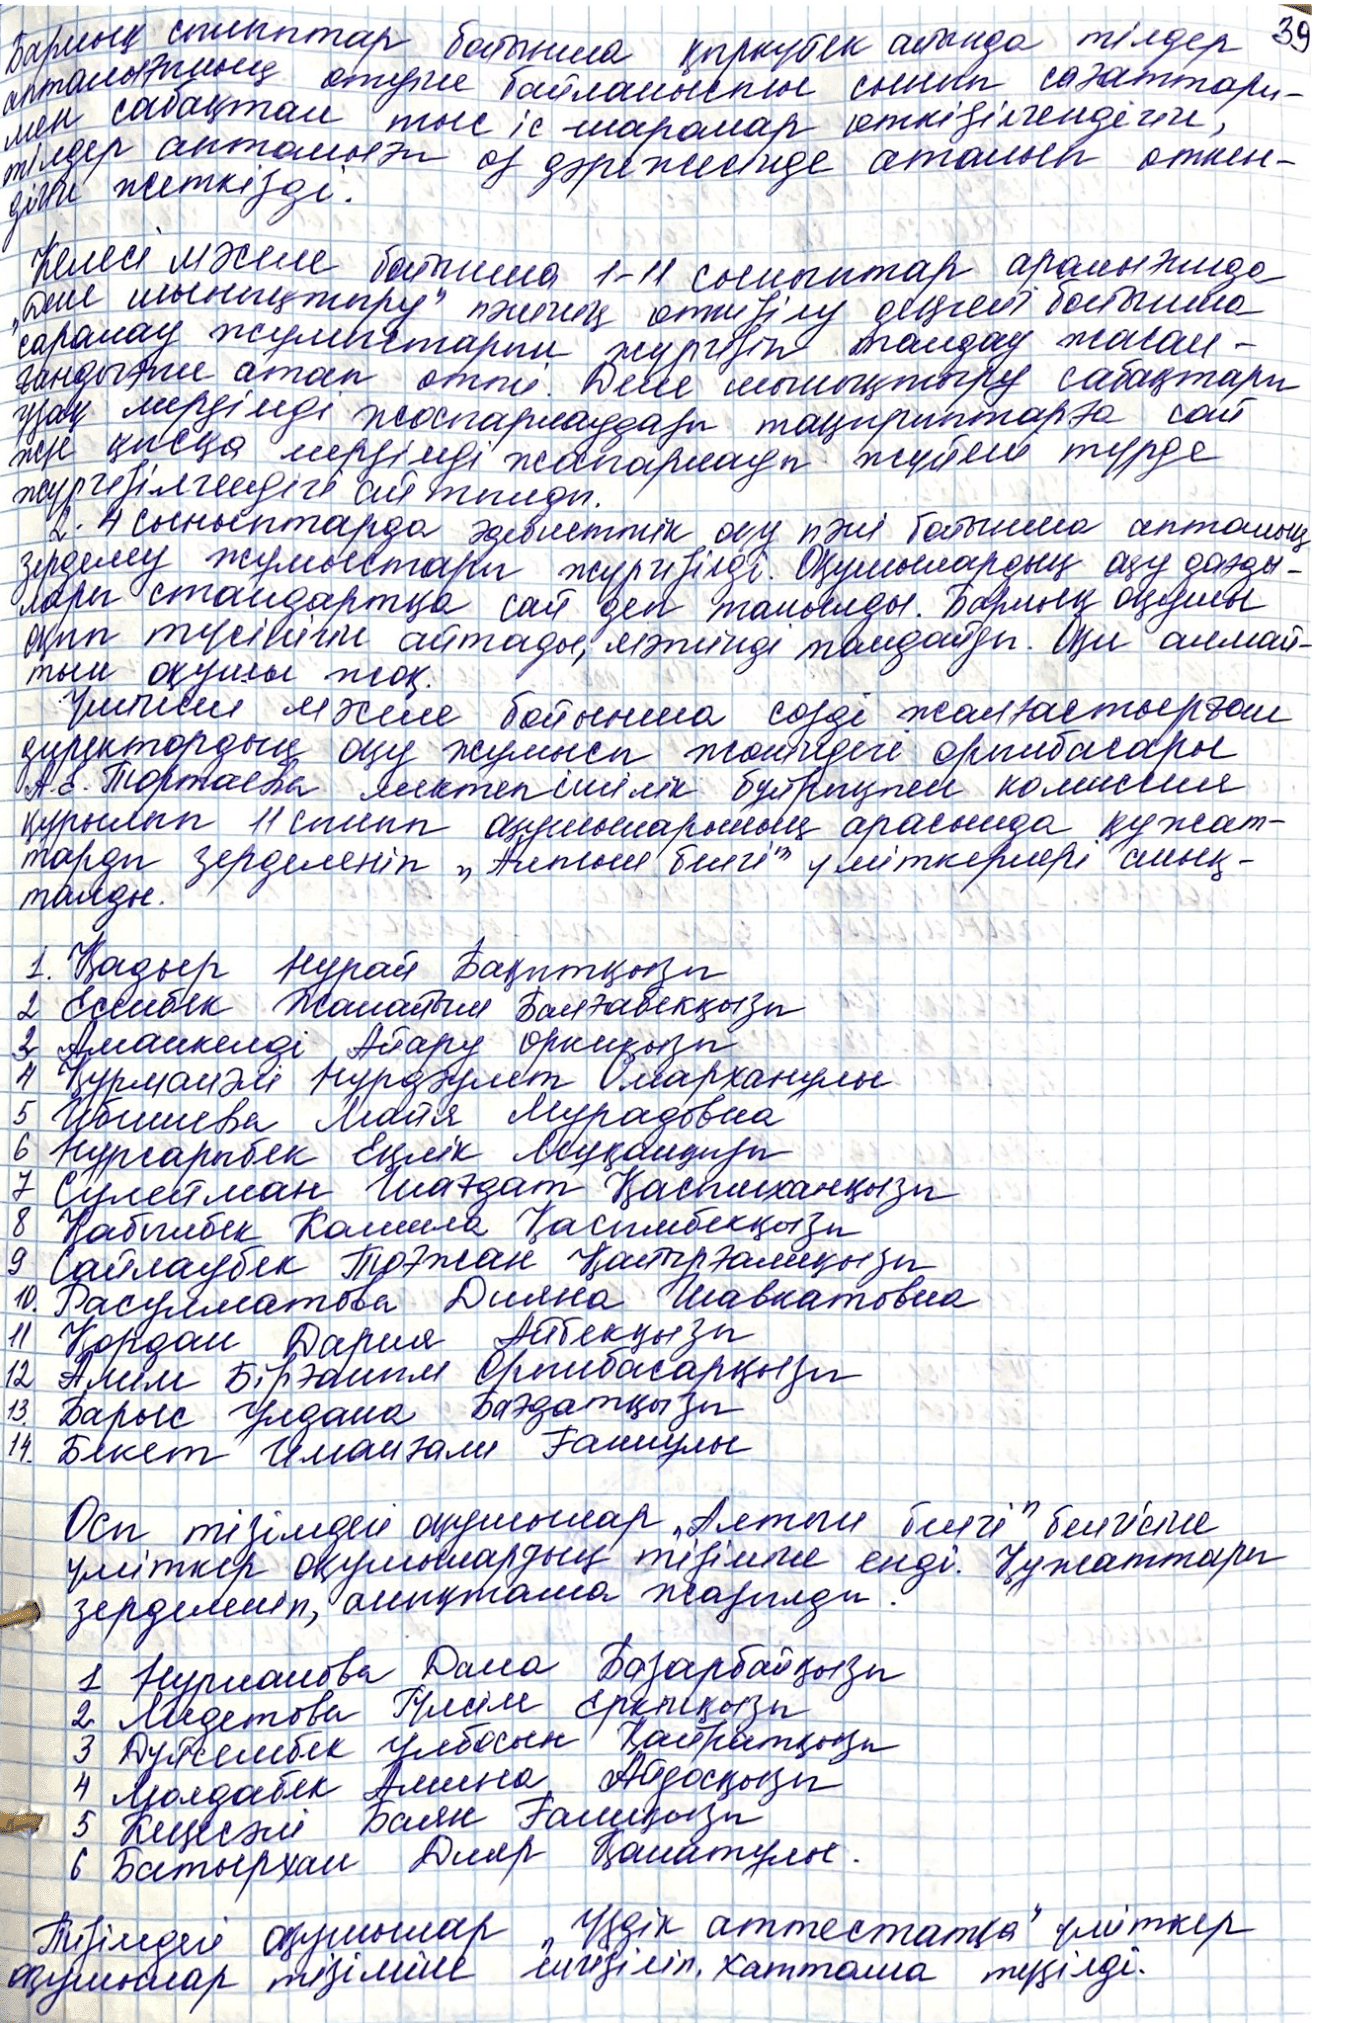 39
Барлық сыныптар бойынша қыркүйек айында тілдер
апталығының өтуіне байланысты сынып сағаттары-
мен сабақтан тыс іс-шаралар өткізілгендігін,
тілдер апталығы өз дәрежесінде аталып өткен-
дігін жеткізді.
Келесі мәселе бойынша 1-11 сыныптар аралығында
„Дене шынықтыру" пәнінің өткізілу деңгейі бойынша
саралау жұмыстарын жүргізіп талдау жасал-
ғандығын атап өтті. Дене шынықтыру сабақтары
ұзақ мерзімді жоспарлаудағы тақырыптарға сай
және қысқа мерзімді жоспарлауы жүйелі түрде
жүргізілгендігі айтылды.
2-4 сыныптарда әдебиеттік оқу пәні бойынша апталық
зерделеу жұмыстары жүргізілді. Оқушылардың оқу дағды-
лары стандартқа сай деп танылды. Барлық оқушы
оқып түсінігін айтады, мәтінді талдайды. Оқи алмай-
тын оқушы жоқ.
Үшінші мәселе бойынша сөзді жалғастырған
директордың оқу жұмысы жөніндегі орынбасары
А.Е. Тортаева мектепішілік бұйрықпен комиссия
құрылып 11 сынып оқушыларының арасында құжат-
тарды зерделеніп „Алтын белгі" үміткерлері анық-
талды.
1. Қадыр Нұрай Бақытқызы
2 Есенбек Жанайым Балғабекқызы
3 Аманкелді Айару Еркінқызы
4 Құрманәлі Нұрдәулет Омарханұлы
5 Ибишева Майя Мурадовна
6 Нұрсарыбек Еңлік Асуқандызы
7 Сүлейман Шағдат Қасымханқызы
8 Қабылбек Камила Қасымбекқызы
9 Сайлаубек Тоғжан Қайырғалиқызы
10. Расулматова Дияна Шавкатовна
11 Қордан Дария Айбекқызы
12 Әлім Бірғаным Орынбасарқызы
13. Барыс Ұлдана Бағдатқызы
14. Бекет Иманғали Ғаниұлы
Осы тізімдегі оқушылар „Алтын белгі" белгісіне
үміткер оқушылардың тізіміне енді. Құжаттары
зерделеніп, анықтама жазылды.
1 Нурманова Дана Базарбайқызы
2 Мидетова Гүлсім Еркінқызы
3 Дүйсембек Ұлбосын Қайратқызы
4 Молдабек Амина Айдосқызы
5 Кеңесәлі Баян Ғалиқызы
6 Батырхан Дияр Қанатұлы.
Тізімдегі оқушылар „Үздік аттестатқа" үміткер
оқушылар тізіміне енгізіліп, хаттама түзілді.